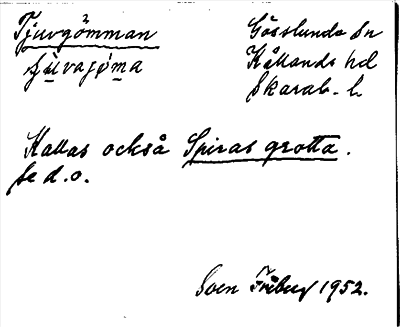 Tjuvgömman
Gösslunda sn
Kållands hd
Skarab. l.
Kallas också Spiras grotta.
Se d.o.
Sven Friberg 1952.